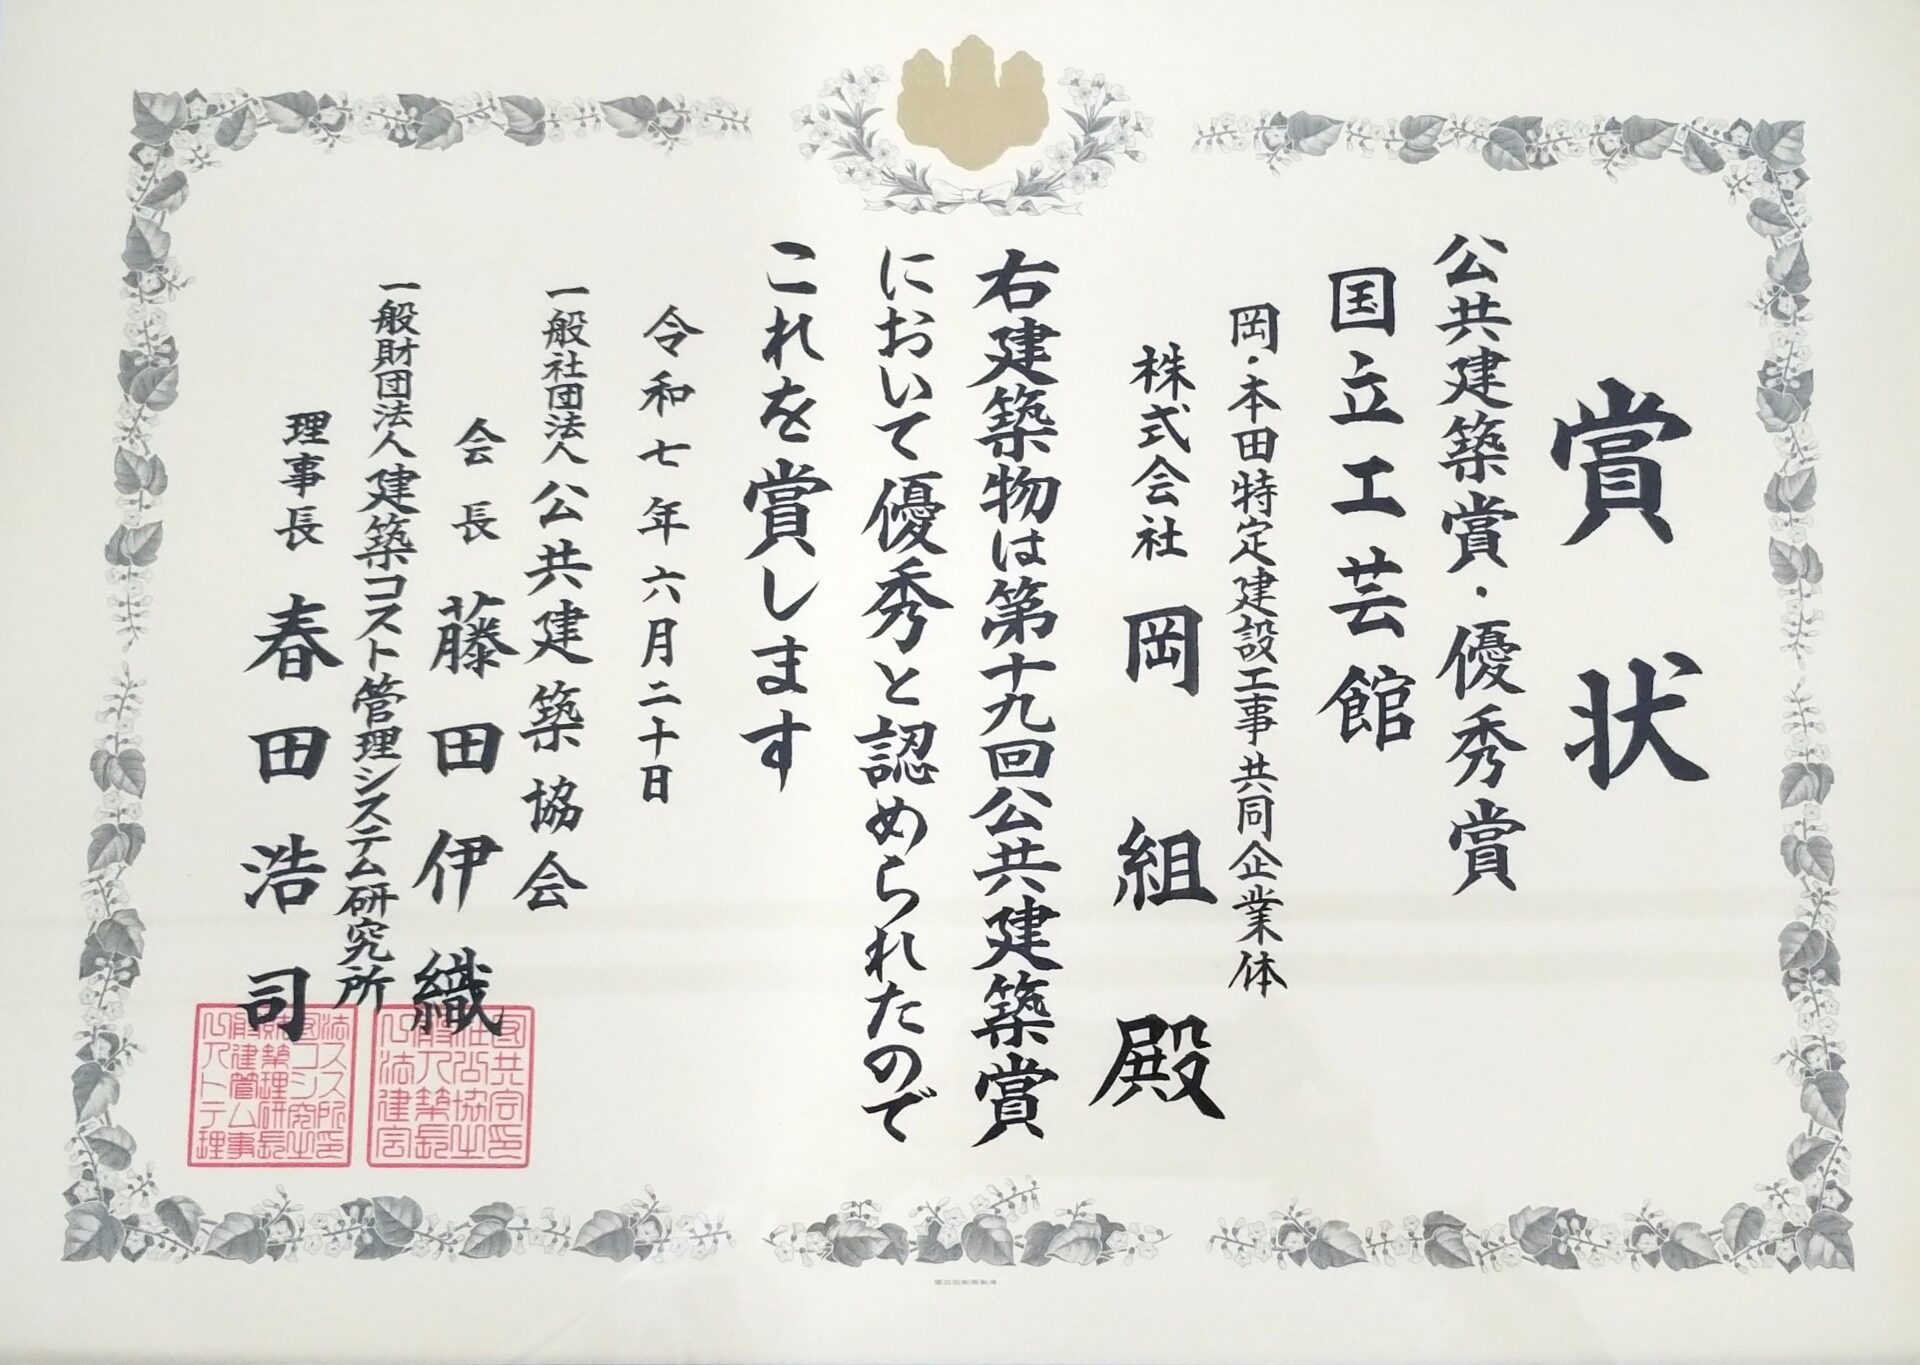 賞状
公共建築賞・優秀賞
国立工芸館
岡・本田特定建設工事共同企業体
株式会社 岡組殿
右建築物は第十九回公共建築賞
において優秀と認められたので
これを賞します
令和七年六月二十日
一般社団法人 公共建築協会
会長 藤田伊織
一般財団法人 建築コスト管理システム研究所
理事長 春田浩司